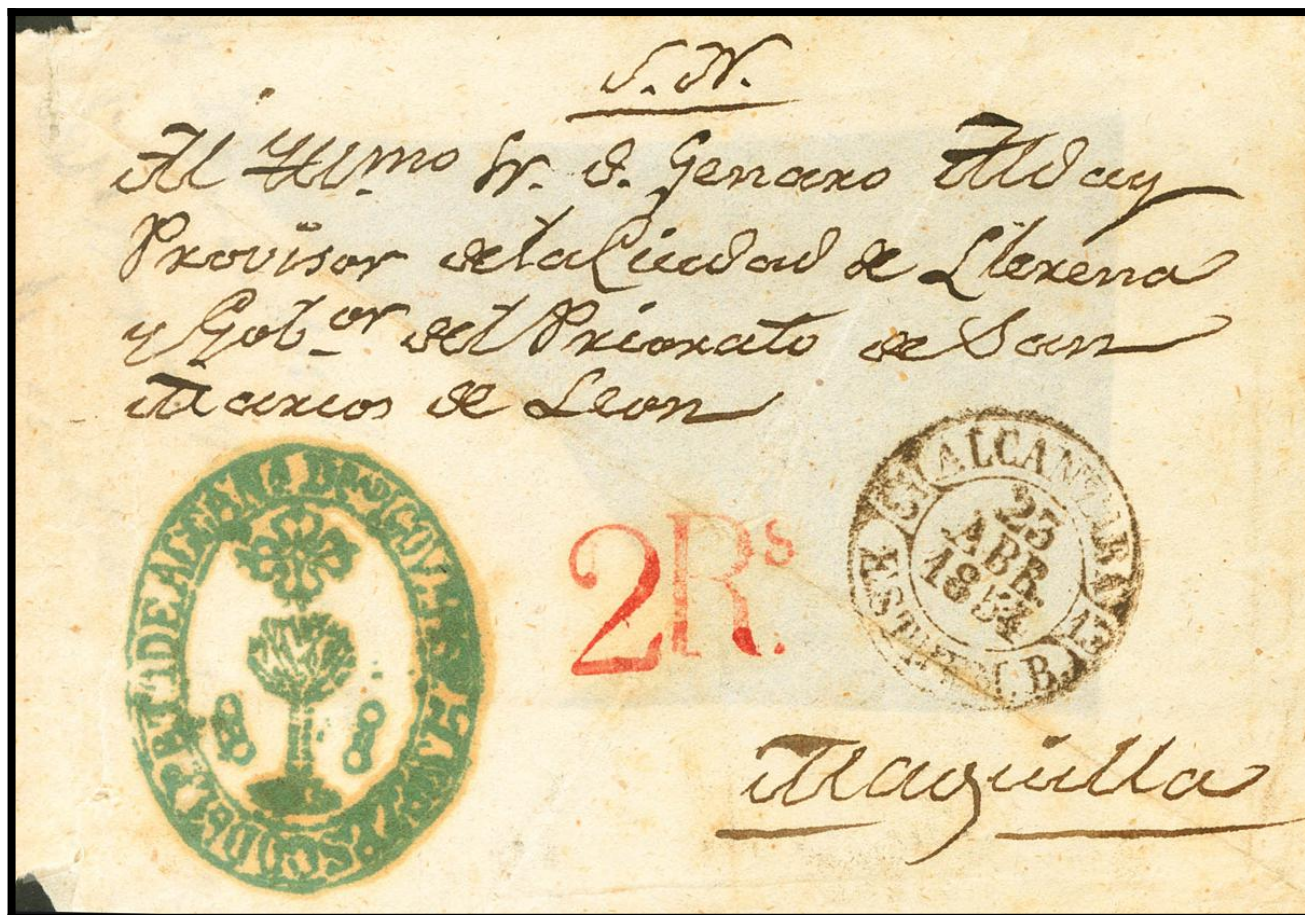 S. N.
Al Yllmo Sr. D. Genaro Alday
Provisor de la Ciudad de Llerena
y Gobor del Priorato de San
Marcos de Leon
2Rs.
ALCANTARA
23
ABR
1854
ESTREM. B.
Maguilla